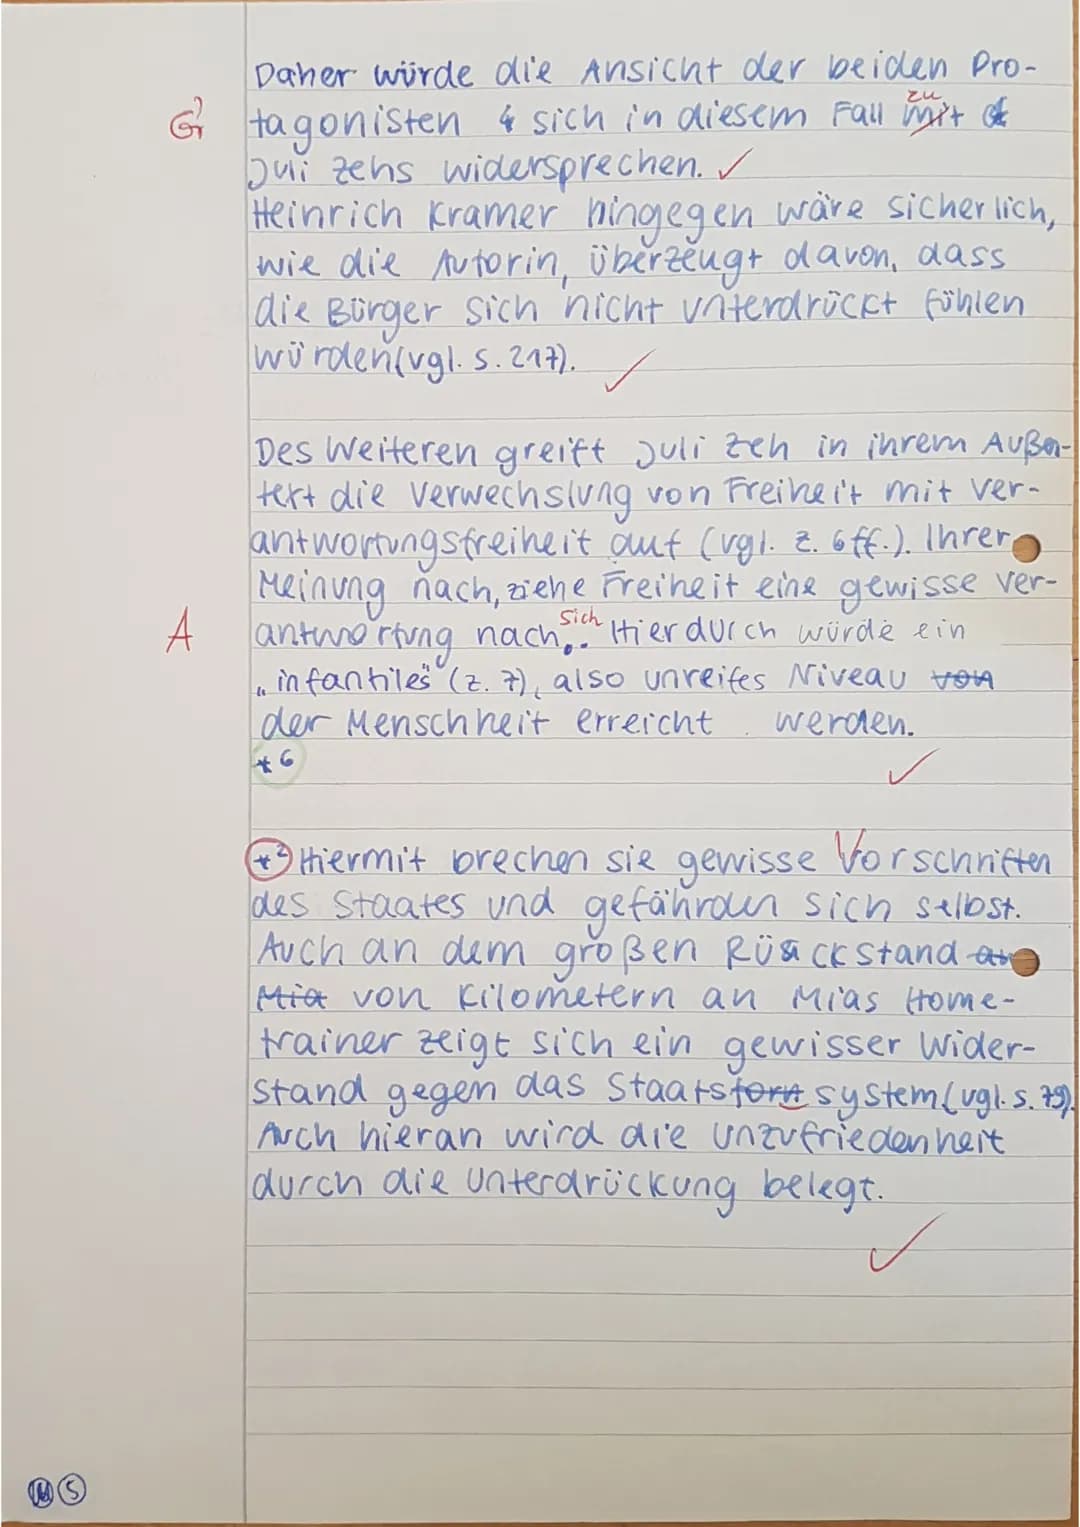 Daher würde die Ansicht der beiden Pro-
zu
G? tagonisten sich in diesem Fall mit
Juli Zehs widersprechen. ✓
Heinrich Kramer hingegen wäre sicherlich,
wie die Autorin, überzeugt davon, dass
die Bürger sich nicht unterdrückt fühlen
würden (vgl. S. 217). ✓
Des Weiteren greift Juli Zeh in ihrem Außen-
text die Verwechslung von Freiheit mit Ver-
antwortungsfreiheit auf (vgl. Z. 6ff.). Ihrer
Meinung nach, ziehe Freiheit eine gewisse Ver-
sich
A antwortung nach. Hierdurch würde ein
"infantiles" (Z. 7), also unreifes Niveau von
der Menschheit erreicht werden.
*6 ✓
*2 Hiermit brechen sie gewisse Vorschriften
des Staates und gefährden sich selbst.
Auch an dem großen Rückstand an
Mia von Kilometern an Mias Home-
trainer zeigt sich ein gewisser Wider-
stand gegen das Staatsform system (vgl. S. 79).
Auch hieran wird die Unzufriedenheit
durch die Unterdrückung belegt.
✓
5